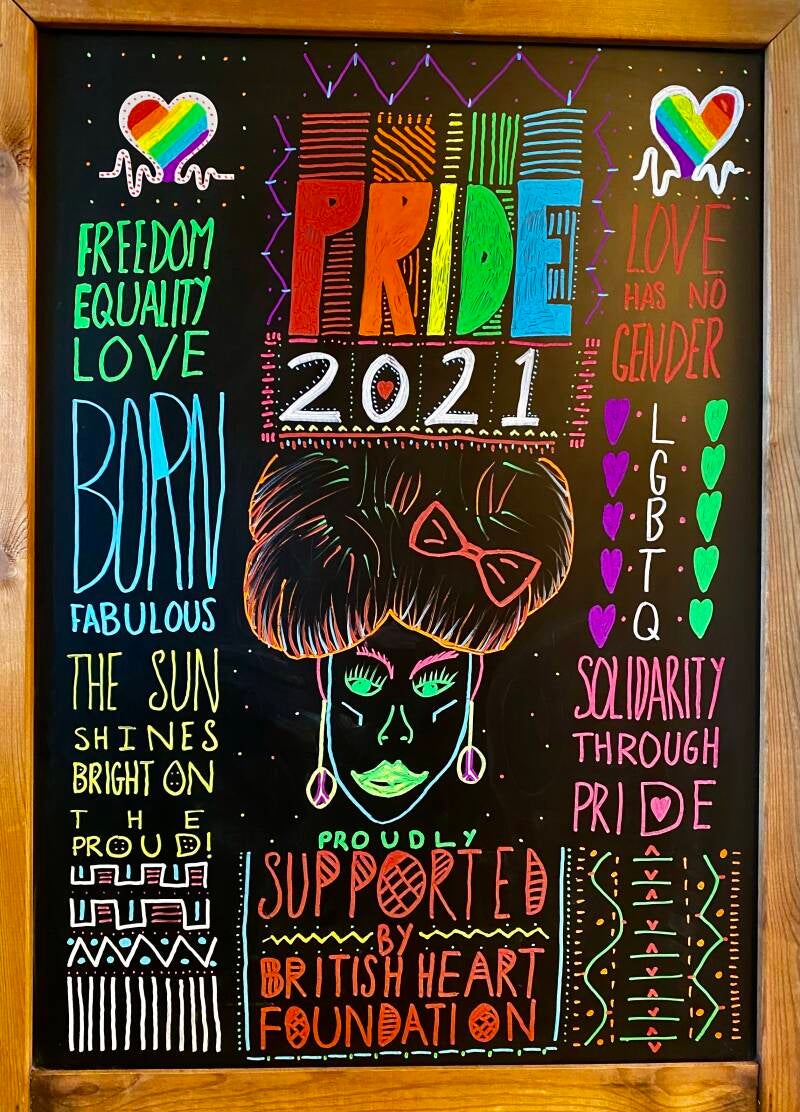 PRIDE
2021
FREEDOM
EQUALITY
LOVE
BORN
FABULOUS
THE SUN
SHINES
BRIGHT ON
THE
PROUD!
LOVE
HAS NO
GENDER
L
G
B
T
Q
SOLIDARITY
THROUGH
PRIDE
PROUDLY
SUPPORTED
BY
BRITISH HEART
FOUNDATION